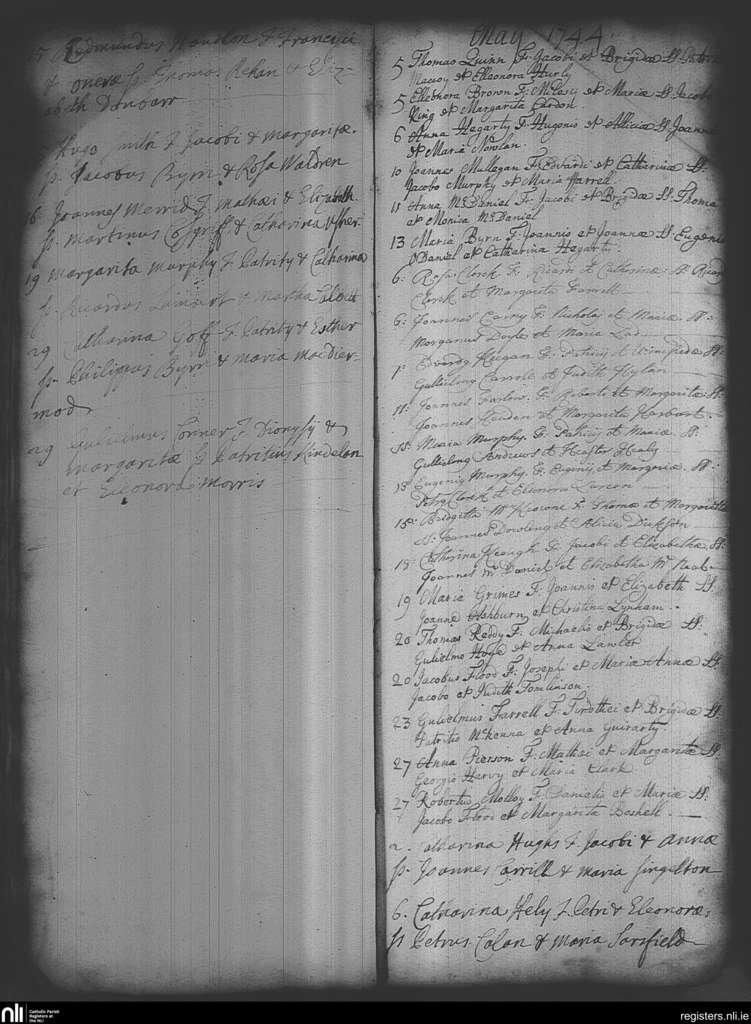 15 Redmundus Houdon F Francisci
& onoræ Sp Thomas Rehan & Eliz-
abeth Dunbarr
Hugo Smith F Jacobi & Margaritæ.
Sp. Jacobus Byrn & Rosa Waldren
16 Joannes Merrid F Mathæi & Elizabeth.
Sp. Martinus & Catharina Usher.
19 Margarita Murphy F Patrity & Catharina
Sp. Ricardus Lambert & Martha Talbott
29 Catharina Goff F Patrity & Esther
Sp. Philippus Byrn & Maria MacDier-
mod
29 Gulielmus Conner F Dionysy &
Margaritæ Sp Patritius Kindelan
et Eleonora Morris
May 1744
5 Thomas Quinn F. Jacobi et Brigidæ SS.
et Elleonora Hurly
5 Elleonora Brown F: Milesi et Mariæ SS. Jacobo
King et Margarita Cardon.
6 Anna Hegarty F: Hugonis et Alliciæ SS. Joanne
et Maria Nowlan.
10 Joannes Mullegan F: Edwardi et Catharinæ SS.
Jacobo Murphy et Maria Farrell
11 Anna McDaniel F: Jacobi et Brigidæ SS. Thoma
et Monica McDaniel
13 Maria Byrn F: Joannis et Joannæ SS. Eugenio
O'Daniel et Catharina Hegarty.
6: Rosa Clerk F: Ricardi et Catherinæ SS
Clerk et Margarita Farrell
6: Joannes Carny F: Nicholaj et Mariæ SS:
Morganus Doyle et Maria
1: Edvardg Keegan F: Patricij et Winefridæ SS:
Carroll et Judith Hylan
11: Joannes Farlow. F: Roberti et Margarita SS:
Joannes Heiden et Margarita Harbart.
Maria Murphy. F: Patricij et Mariæ SS:
Andrews et Heaster Healy
18 Eugenig Murphy. F: Eugenij et SS:
Petrg Clerk et Eleonora
15: Bridgitta F: Thomæ et Margaritta
SS: Joannes Dowling et Alicia Dickson
18: Catharina Keough F: Jacobi et Elizabethæ SS:
Joannes McDaniel et Elizabetha
19 Maria Grimes F: Joannis et Elizabeth SS.
Joanne Washburn et Christina Lynham.
20 Thomas Reddy F: Michaelis et Brigidæ SS.
Gulielmo et Anna Lawler
20 Jacobus Flood F: Josephi et Mariæ Annæ SS.
Jacobo et Judith Tomlinson.
23 Gulielmus Farrell F: et Brigidæ SS.
Patritio McKenna et Anna
27 Anna Pierson F: Mathæi et Margaritæ SS.
Georgio Harvy et Maria Clark
27 Robertus Molloy F: Danielis et Mariæ SS:
Jacobo Flood et Margarita Boshell.
2. Catharina Hughs F Jacobi & Annæ
Sp. Joannes Carrill & Maria Singelton
6. Catharina Hely F Petri & Eleonoræ.
Sp Petrus Colan & Maria Sarsfield
nli Catholic Parish
Registers at
the NLI
registers.nli.ie